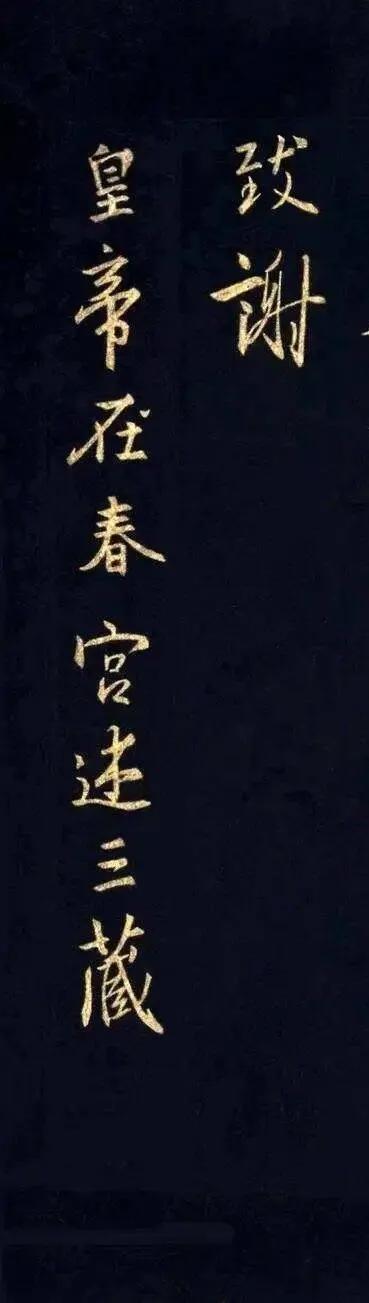 致謝
皇帝在春宮述三藏